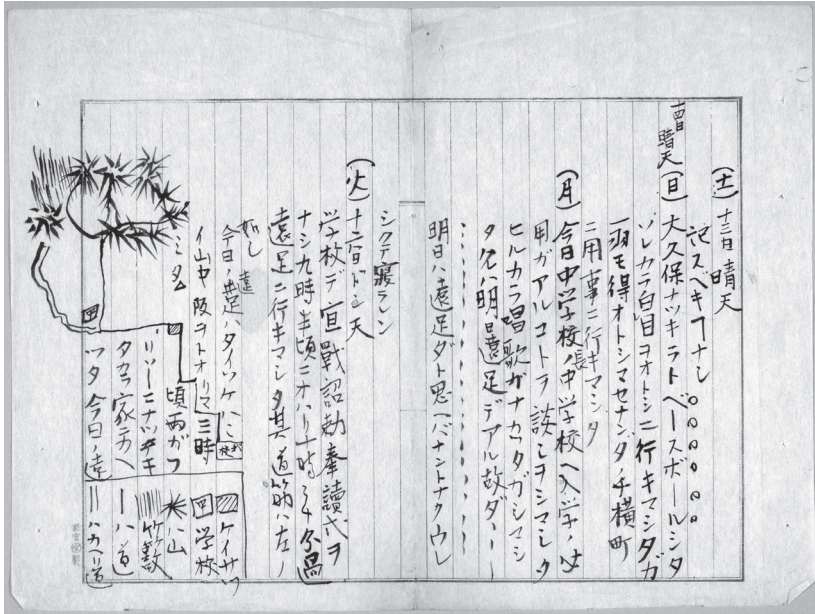 (土)十三日晴天
記スベキヿナシ。。。。。。
十四日晴天
(日)大久保ナツキラトベースボールシタ
ソレカラ白目ヲオトシニ行キマシタガ
一羽モ得オトシマセナンダノチ横町
ニ用事ニ行キマシタ
(月)今日中学校長ノ中学校ヘ入学ノ
用ガアルコトヲ談シヲシマシタ
ヒルカラ唱歌ガナカツタガシマシ
タ名ハ明日遠足デアル故ダ
明日ハ遠足ダト思ヘバナントナクウレ
シクテ寝ラレン
(火)十六日ドン天
学校デ宣戰詔勅奉讀式ヲ
ナシ九時半頃ニオハリ十時三十分過
遠足ニ行キマシタ其道筋ハ左ノ
如し
今日ノ遠足ノタイツケハミ
イ山中阪ヲトオリマ三時
ミタ
頃雨ガフ
リソーニナツキ
タカラ家ニカヘ
ツタ今日ノ遠
ケイサツ
学校
ハ山
竹藪
ハ道
ハカヘリ道